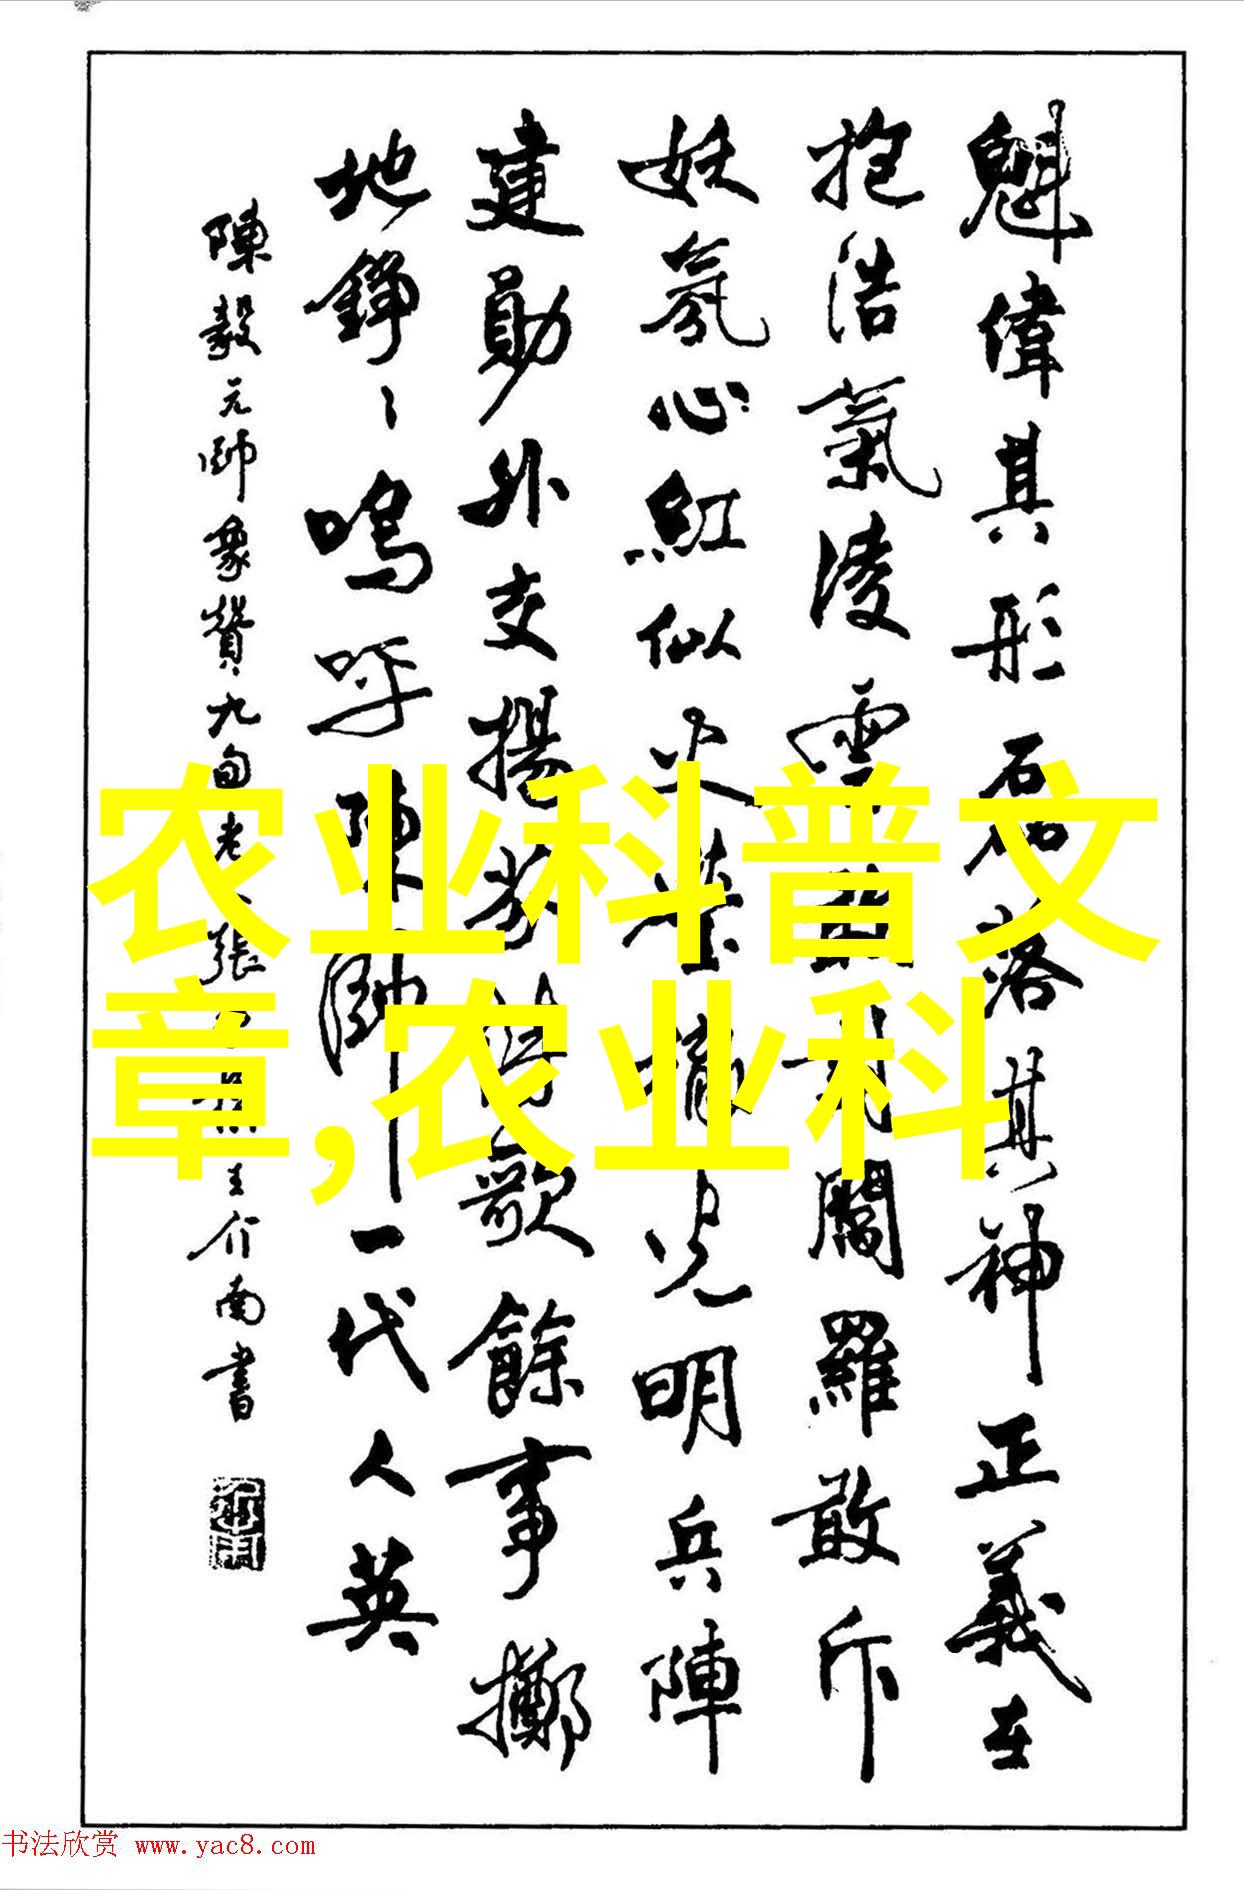 魁偉其形磊落其神正義在
抱浩氣凌雲閻羅敢斥
妖氛心紅似火光明兵陣
建勛外交揚詩歌餘事擲
地錚〻嗚呼陳帥一代人英
陳毅元帥象贊九旬老人張王介南書
农业科普文
章,农业科
书法欣赏 www.yac8.com